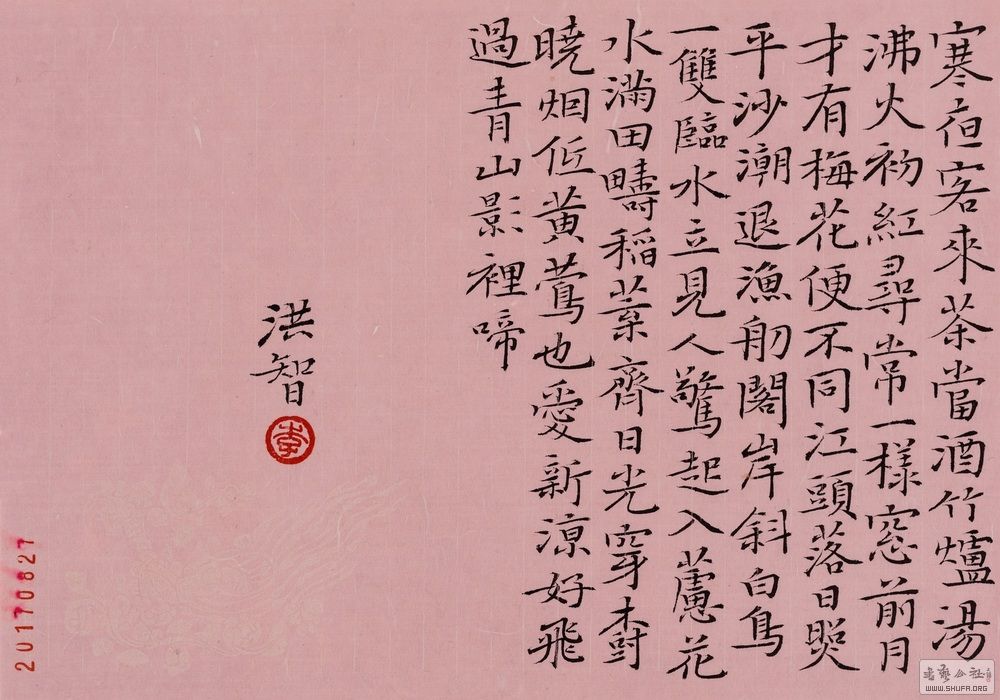 寒夜客來茶當酒竹爐湯
沸火初紅尋常一樣窓前月
才有梅花便不同江頭落日照
平沙潮退漁舠閣岸斜白鳥
一雙臨水立見人驚起入蘆花
水滿田疇稻葉齊日光穿樹
曉烟低黄鶯也愛新涼好飛
過青山影裡啼
洪智
李
20170827
书艺公社
WWW.SHUFA.ORG